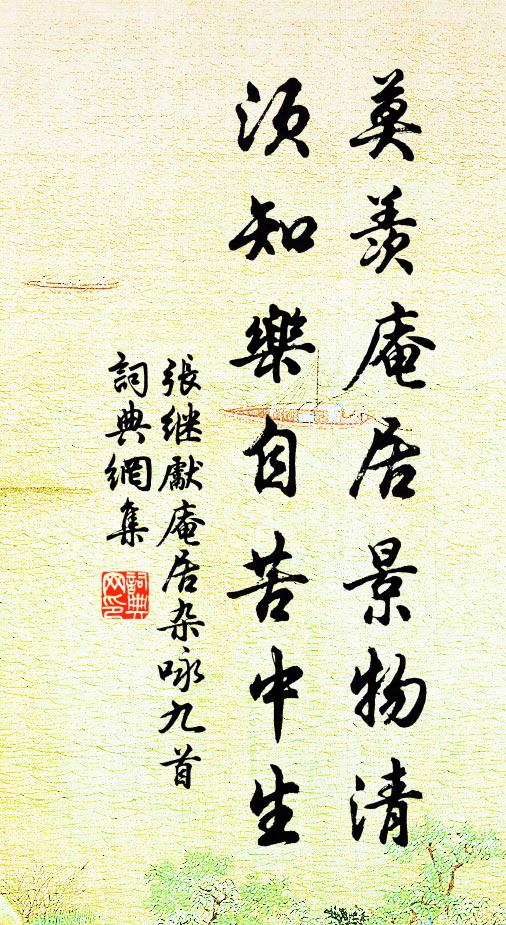 莫羨庵居景物清
須知樂自苦中生
張继獻庵居杂咏九首
詞典網集
詞典網印